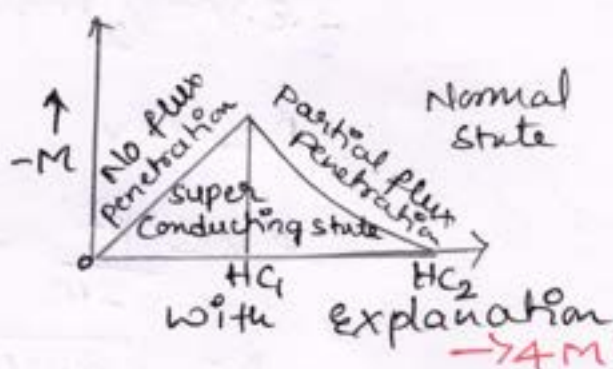 No flux
penetration
Partial flux
Penetration
Normal
state
-M
super
Conducting state
0
HC1
HC2
with Explanation
→4M